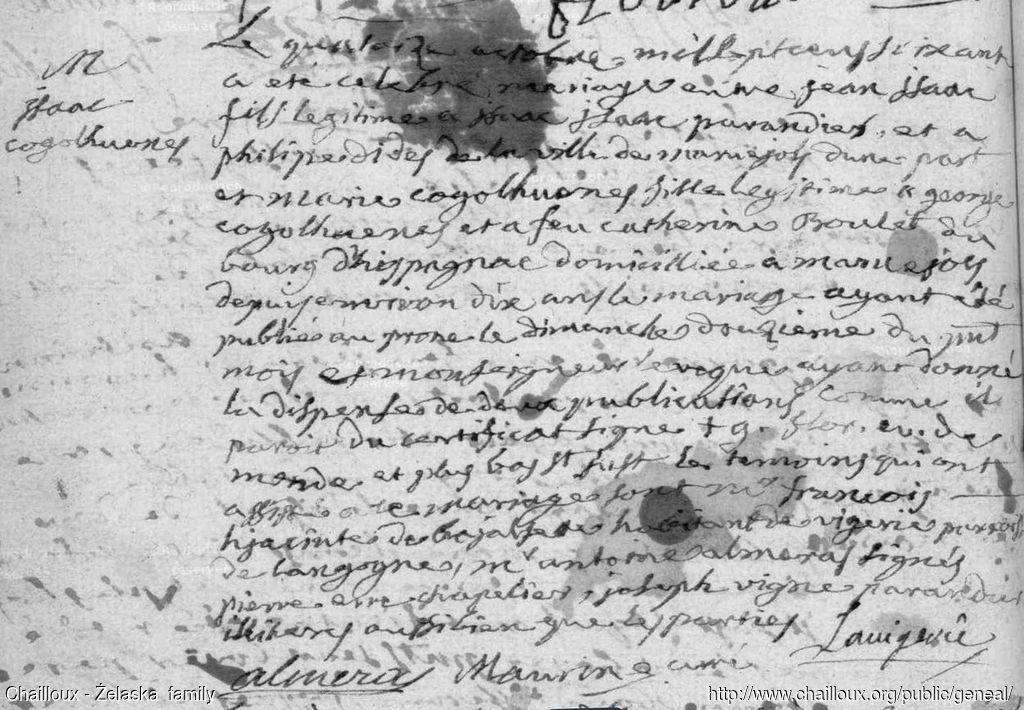 M
jsaac
cogolhuenes
Le quatorze octobre mill sept cens soixante
a eté celebré mariage entre jean jsaac
fils legitime a jsaac jsaac parandier, et a
philipe dides de la ville de maruejols d'une part
et Marie cogolhuenes fille legitime a george
cogolhuenes et a feu catherine Boulet du
bourg d'hispagnac domicilliée a maruejols
depuis environ dix ans le mariage ayant été
publié au prone le dimanche douzieme du pnt
mois et monseigneur l'eveque ayant donné
la dispense de deux publications comme il
paroit du certificat signé + g. flor. ev. de
mende et plus bas les temoins qui ont
assisté a ce mariage sont mr francois
hjacinte de habitant de vigerie paroisse
de langogne, mr antoine almeras signés
pierre chapelier, joseph vigne parandier
illiteres aussi bien que les parties
almera Maurin curé Lavigerie
Chailloux - Żelaska family
http://www.chailloux.org/public/geneal/